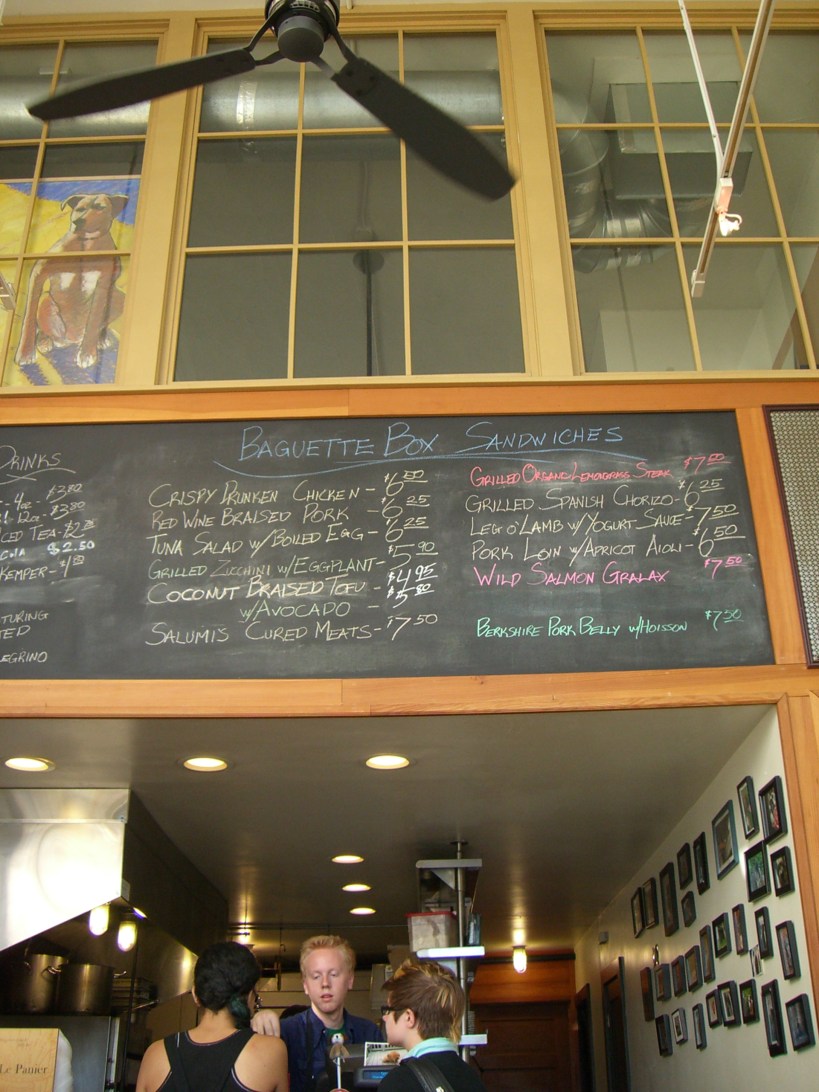 DRINKS
4oz - $3.00
12oz - $3.80
ICED TEA - $2.25
$2.50
KEMPER -
BAGUETTE BOX SANDWICHES
CRISPY DRUNKEN CHICKEN - $6.50
RED WINE BRAISED PORK - $6.25
TUNA SALAD w/BOILED EGG - $6.25
GRILLED ZUCCHINI w/EGGPLANT - $5.90
COCONUT BRAISED TOFU - $4.95
w/AVOCADO - $5.80
SALUMI'S CURED MEATS - $7.50
GRILLED ORGANIC LEMONGRASS STEAK $7.50
GRILLED SPANISH CHORIZO - $6.25
LEG O' LAMB w/YOGURT SAUCE - $7.50
PORK LOIN w/APRICOT AIOLI - $6.50
WILD SALMON GRALAX $7.50
BERKSHIRE PORK BELLY w/HOISSON $7.50
Le Panier